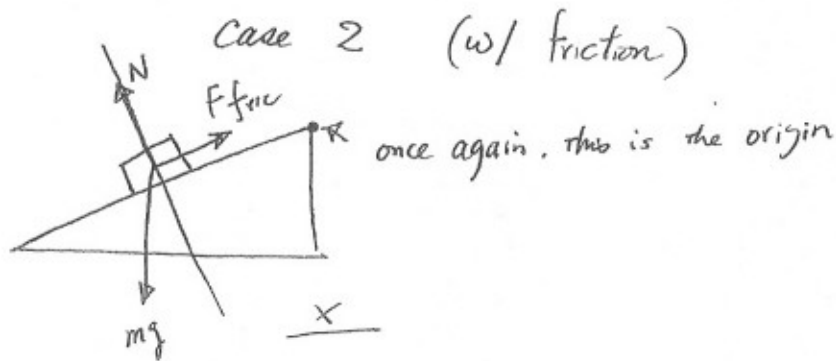 Case 2 (w/ friction)
N
F fric
once again. this is the origin
mg
x